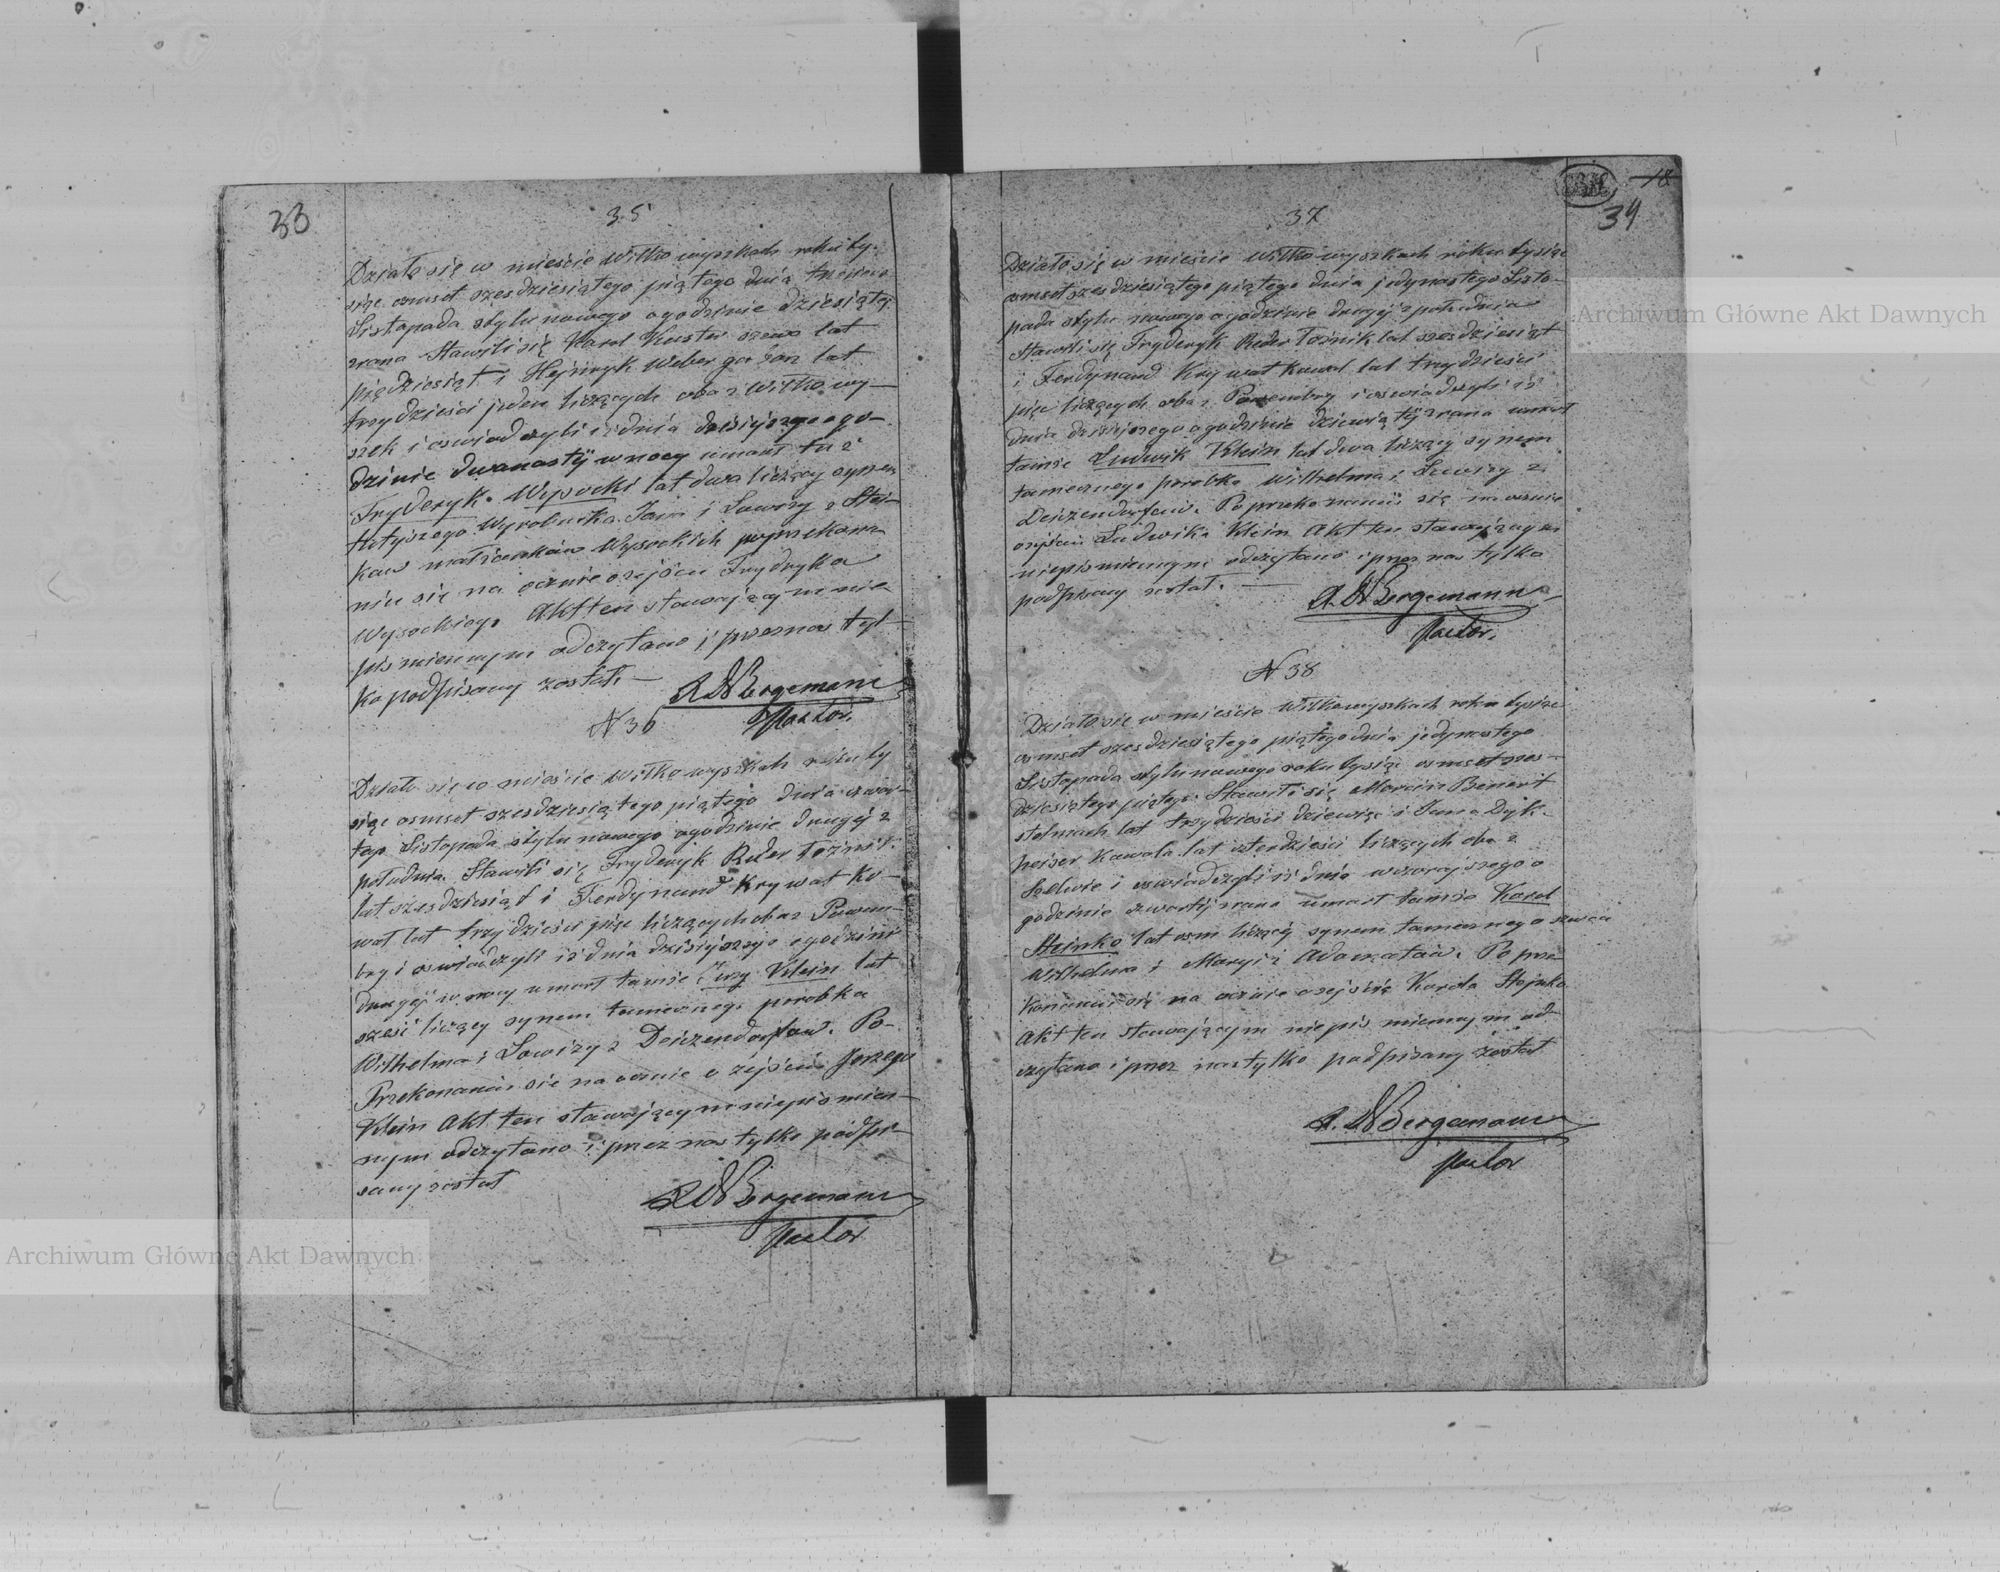 33
35
Działo się w mieście Wiłkowyszkach roku ty-
siąc osmset szesdziesiątego piątego dnia trzeciego
Listopada stylu nowego o godzinie dziesiątej
zrana Stawili się Karol Kuster szewc lat
piędziesiąt i Hejnryk Weber garbarz lat
trzydzieści jeden liczących oba z Wiłkowy-
szek i oswiadczyli iż dnia dzisiejszego o go-
dzinie dwanastej w nocy umarł tu
Fryderyk Wysocki lat dwa liczący synem
tutejszego Wyrobnika Jana i Lowizy z
małżonków Wysockich po przekona-
niu się na ocznie o zejściu Frydryka
Wysockiego Akt ten stawającym nie
pismiennym odczytano i przez nas tyl-
ko podpisany został. —
A. W Bergemann
Pastor.
N 36
Działo się w mieście Wiłkowyszkach roku ty
siąc osmset szesdziesiątego piątego dnia czwar-
tego Listopada stylu nowego o godzinie drugiej z
południa Stawili się Fryderyk Reder
lat szesdziesiąt i Ferdynand Krywat ko-
wal lat trzydzieści pięc liczących oba z Pawem-
bry i oswiadczyli iż dnia dzisiejszego o godzinie
drugiej w nocy umarł tamże Jerzy Klein lat
sześć liczący synem tamecznego parobka
Wilhelma i Lowizy z Deiczendorfów. Po-
Przekonaniu się na ocznie o zejściu Jerzego
Klein Akt ten stawającym niepismien-
nym odczytano i przez nas tylko podpi-
sany został
A W Bergemann
Pastor
18
34
37
Działo się w mieście Wiłkowyszkach roku tysiąc
osmset szesdziesiątego piątego dnia jedynastego Listo-
pada stylu nowego o godzinie drugiej z południa
Stawili się Fryderyk Reder lat szesdziesiąt
i Ferdynand Krywat kowal lat trzydzieści
pięc liczących oba z Pawembry i oswiadczyli iż
dnia dzisiejszego o godzinie dziewiątej zrana umarł
tamże Ludwik Klein lat dwa liczący synem
tamecznego parobka Wilhelma i Luwizy z
Deiczendorfów. Po przekonaniu się na ocznie
o zejściu Ludwika Klein Akt ten stawającym
niepismiennym odczytano i przez nas tylko
podpisany został. —
A. W Bergemann
Pastor.
N 38
Działo się w mieście Wiłkowyszkach roku tysiąc
osmset szesdziesiątego piątego dnia jedynastego
Listopada stylu nowego roku tysiąc osmset szes-
dziesiątego piątego Stawili się Marcin Benert
stelmach lat trzydzieści dziewięc i Jan Dyk-
hejser Kowal lat czterdzieści liczących oba z
i oswiadczyli iż dnia wczorajszego o
godzinie czwartej zrana umarł tamże Karol
Stejnko lat osm liczący synem tamecznego szewca
Wilhelma i Maryi z Adomatów. Po prze-
konaniu się na ocznie o zejściu Karola Stejnko
Akt ten stawającym niepismiennym od-
czytano i przez nas tylko podpisany został
A. W Bergemann
Pastor
Archiwum Główne Akt Dawnych
Archiwum Główne Akt Dawnych